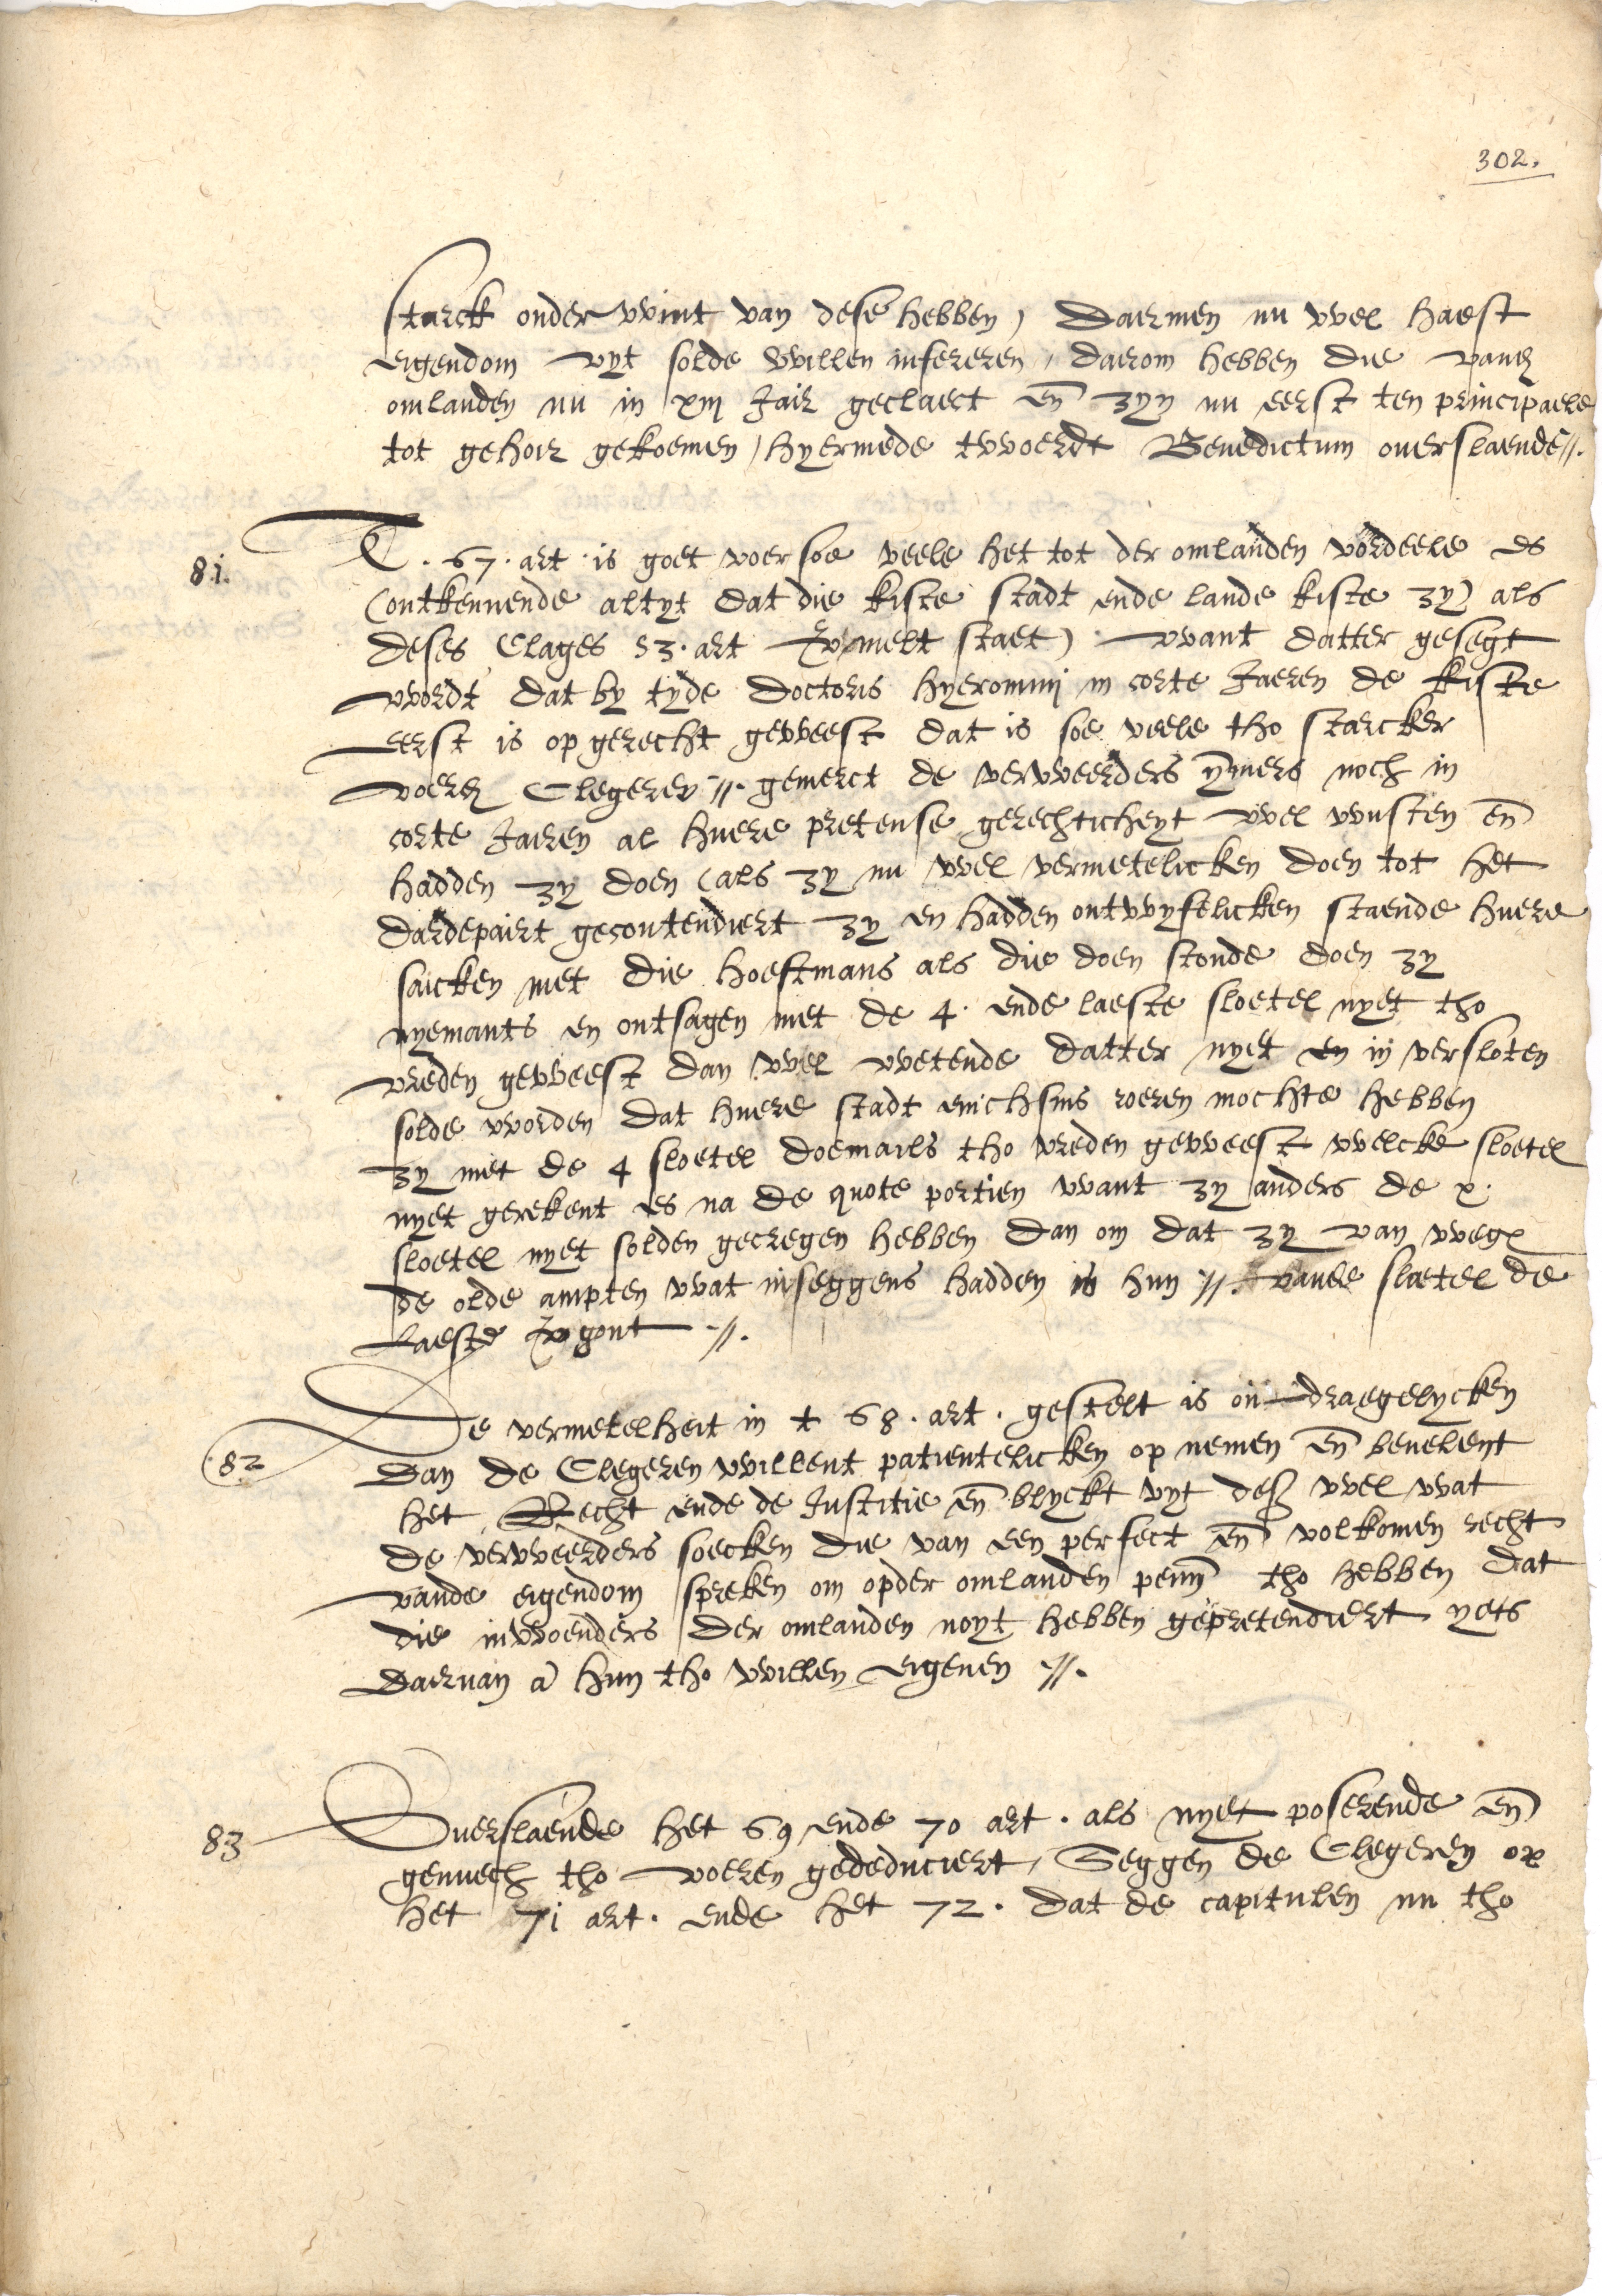 302.
starck onder wint van dese hebben, Daermen nu wel haest
eigendom uyt solde willen infereren, dairom hebben die vande
omlanden nu in xiij Jair geclaect en zyn nu eerst ten principaele
tot gehoir gekoemen, hyermede twoerdt Benedictum overslaende //.
81.
T. 67. art. is goet voer soe veele het tot der omlanden vordeele es
(ontkennende altyt dat die kiste stadt ende lande kiste zy) als
deses Clages 53. art vermelt staet) want datter gesegt
wordt dat by tyde Doctoris Hyeronimi in corte Jaeren de kiste
eerst is opgerecht geweest dat is soe veele tho starcker
voerde Clegeren //. gemerct de verweerders ymmers noch in
corte Jairen al huere pretense gerechticheyt wel wusten en
hadden zy doen (als zy nu wel vermetelicken doen tot het
dardepairt gecontendiert zy en hadden ontwyfelicken staende huere
saicken met die hoeftmans als die doen stonde doen zy
nyemants en ontsagen met de 4. ende laeste sloetel nyet tho
vreden geweest dan wel wetende datter nyet en in versloten
solde worden dat huere stadt enichsins roeren mochte hebben
zy met de 4 sloetel doemails tho vreden geweest welcke sloetel
nyet gerekent es na de quote portien want zy anders de x.
sloetel nyet solden gecregen hebben dan om dat zy van wege
de olde ampten wat inseggens hadden is hun //. vande sloetel de
laeste vergont //.
82
De vermetelheit in t 68. art. gestelt is on draegelycken
Dan de Clegeren willent patientelicken op nemen en bevelent
het Recht ende de Justitie en blyckt uyt des wel wat
de verweerders soecken die van een perfect en volkomen recht
vande eigendom spreken om opder omlanden penn tho hebben dat
die inwoenders der omlanden noyt hebben gepretendiert yets
dairvan a hun tho willen eigenen //.
83
Overslaende het 69 ende 70 art. als nyet poserende en
genuech tho voeren gededuciert, Seggen de Clegeren op
het 71 art. ende het 72. dat de capitulen nu tho